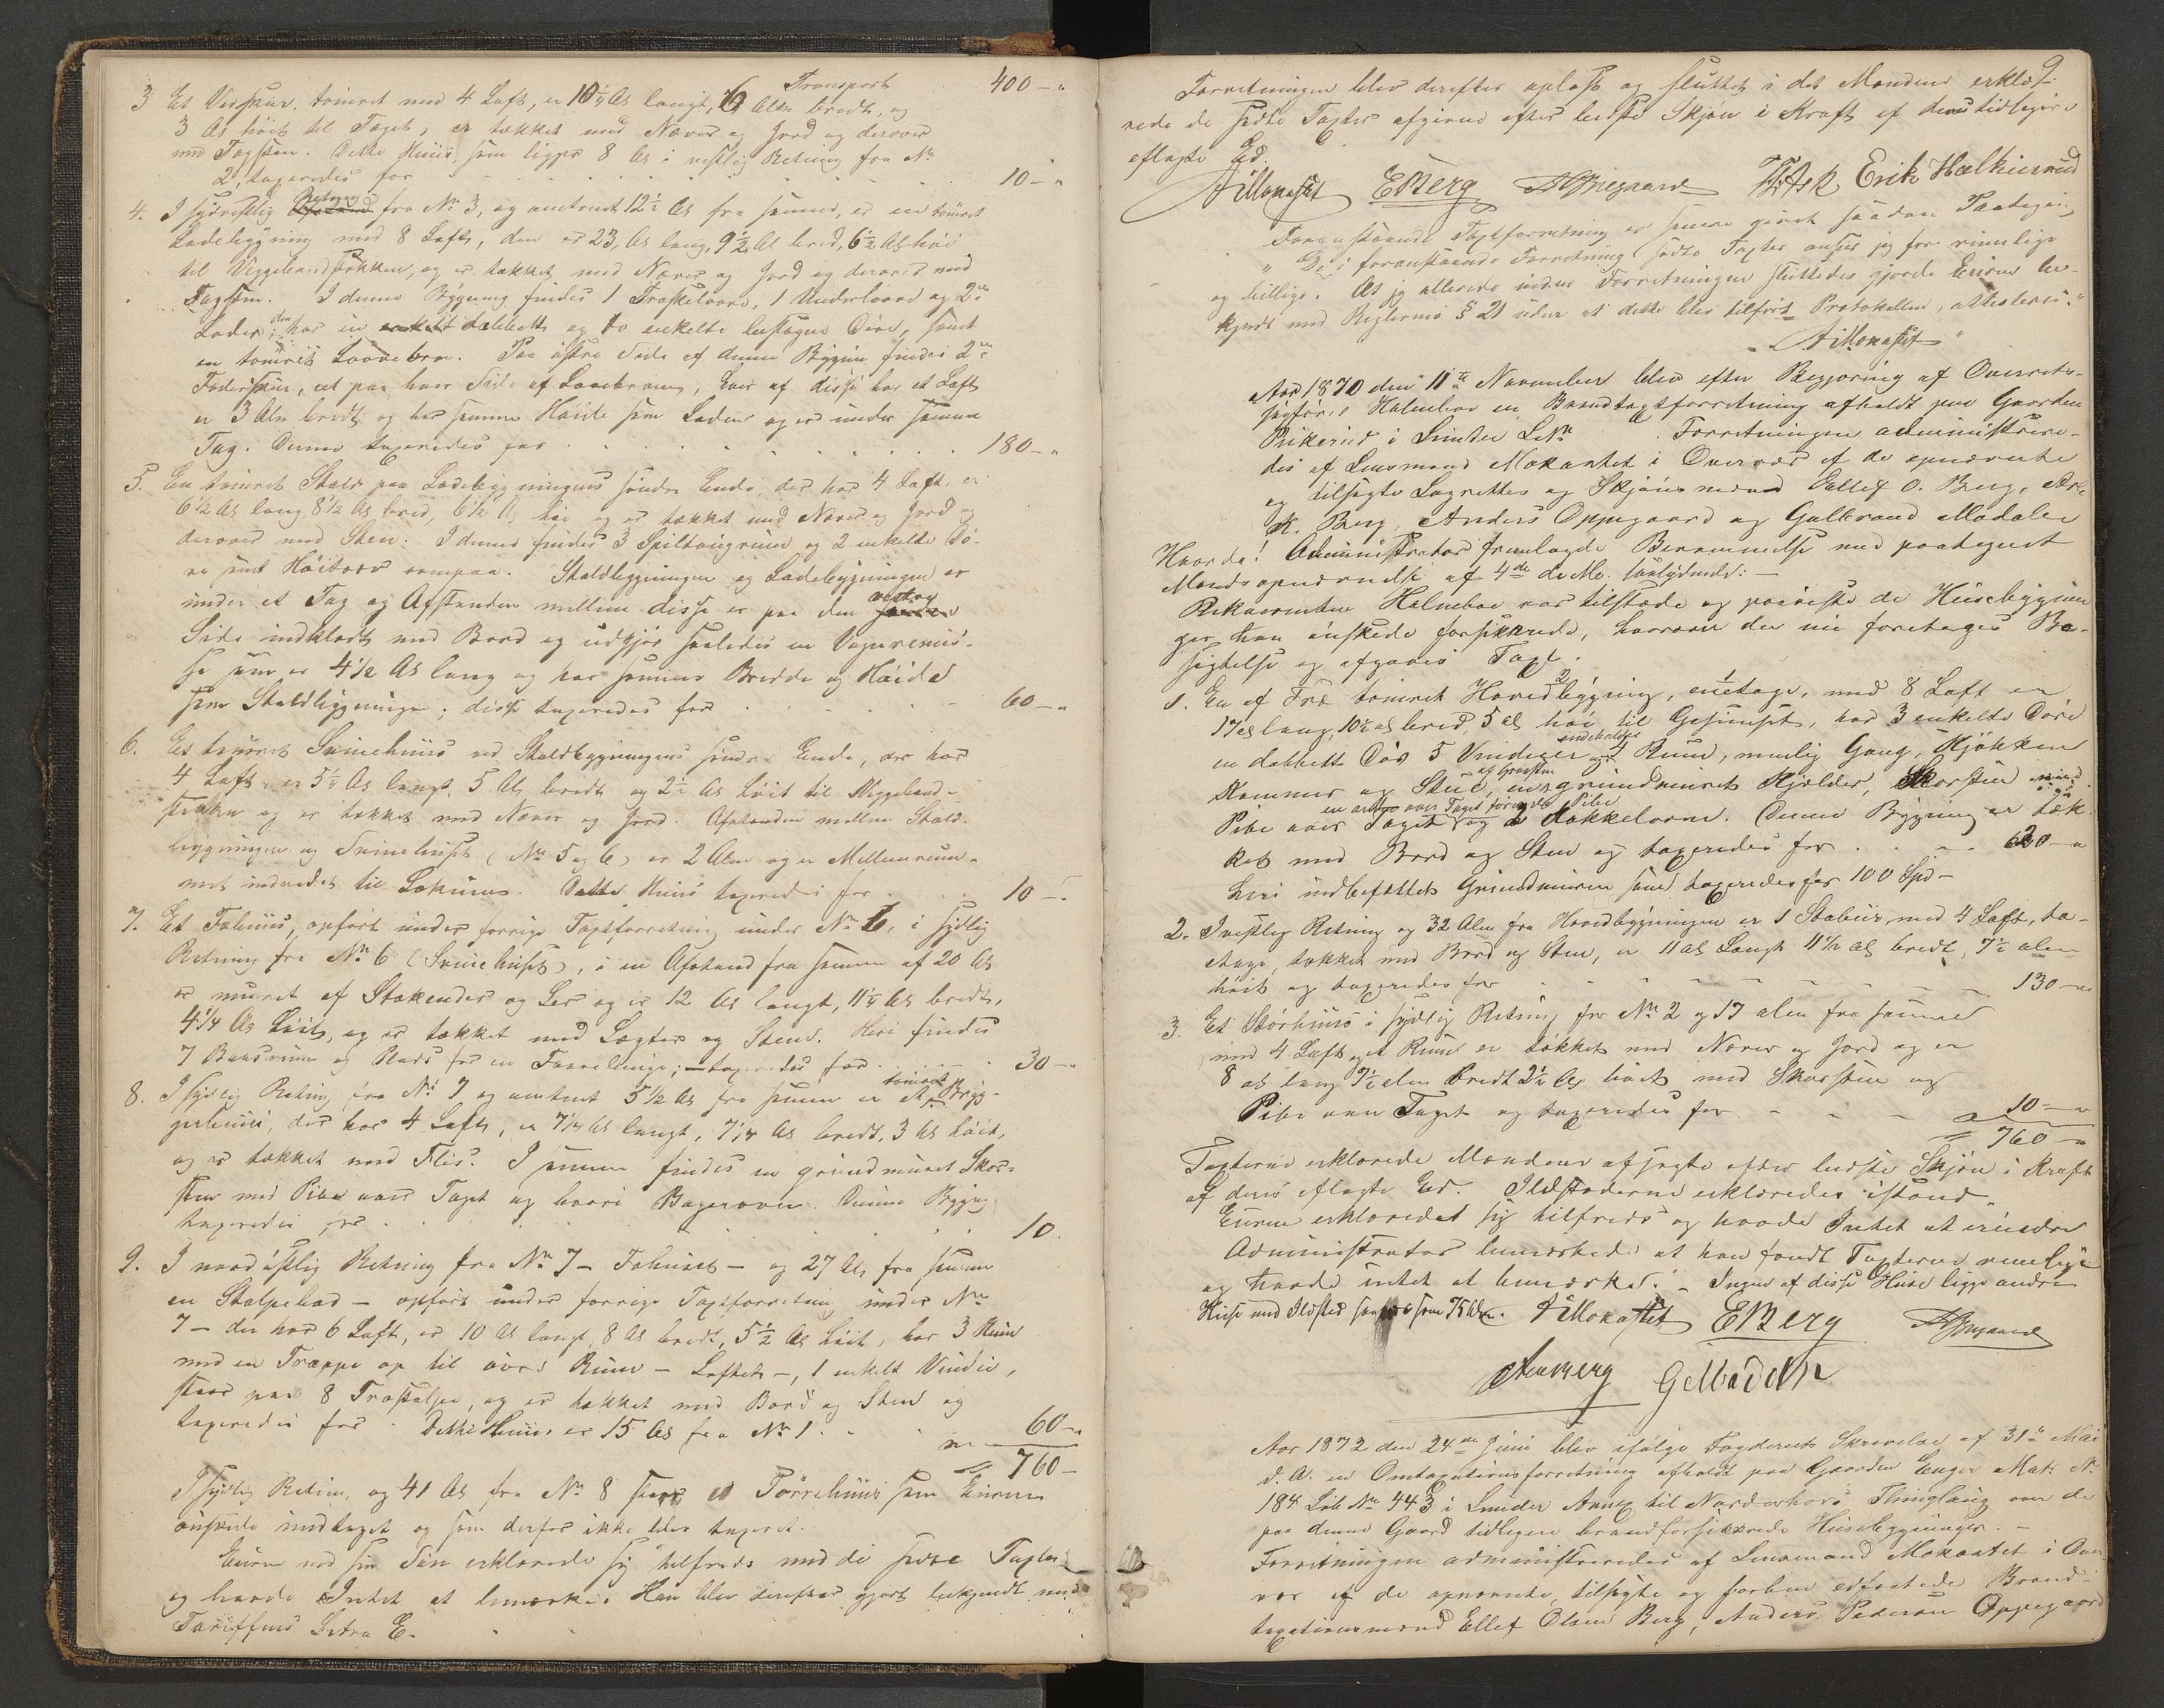 Transport 400 – "
3 Et Vedskuur, tømret med 4 Laft, er 10 1/4 Al langt, 6 Alen bredt, og
3 Al høit til Taget, er tækket med Næver og Jord og derover
med Tagsten. Dette Huus, som ligger 8 Al i vestlig Retning fra No
2, taxeredes for 10 – "
4. I sydvestlig Retning fra No 3, og omtrent 12 1/2 Al fra samme, er en tømret
Ladebygning med 8 Laft, den er 23 Al lang, 9 1/2 Al bred, 6 1/2 Al høi
til Veggebaandstokken, og er tækket med Næver og Jord og derover med
Tagsten. I denne Bygning findes 1 Træskeloave, 1 Underloave og 2de
Lader; den har en dobbelt og to enkelte beslagne Døre, samt
en tømret Laavebro. Paa østre Side af denne Bygning findes 2de
Foderskuur, et paa hver Side af Laavebroen, hver af disse har et Laft
er 3 Alen bredt og har samme Høide som Laden og er under samme
Tag. Denne taxeredes for 180 – "
5. En tømret Stald paa Ladebygningens søndre Ende, der har 4 Laft, er
6 1/2 Al lang, 8 1/2 Al bred, 6 1/2 Al høi og er tækket med Næver og Jord og
derover med Sten. I denne findes 3 Spiltougrum og 2 enkelte Dø-
re samt Høitrev ovenpaa. Staldbygningen og Ladebygningen er
under et Tag og Afstanden mellem disse er paa den vestre
Side indklædt med Bord og udgjør saaledes en Vognremis-
se som er 4 1/2 Al lang og har samme Bredde og Høide
som Staldbygningen; disse taxeredes for 60 – "
6. Et tømret Svinehuus ved Staldbygningens søndre Ende, der har
4 Laft, er 5 1/4 Al langt, 5 Al bredt og 2 1/2 Al høit til Veggebaand-
stokken og er tækket med Næver og Jord. Afstanden mellem Stald-
bygningen og Svinehuset (No 5 og 6) er 2 Alen og er Mellemrum-
met indredet til Lokum. Dette Huus taxeredes for 10 – "
7. Et Fæhuus, opført under forrige Taxtforretning under No 6, i sydlig
Retning fra No 6 (Svinehuset), i en Afstand fra samme af 20 Al
er muret af Stokender og Ler og er 12 Al langt, 11 1/4 Al bredt,
4 1/4 Al høit, og er tækket med Lægter og Sten. Heri findes
7 Baasrum og Plads for en Faarebinge; – taxeredes for 30 – "
8. I sydlig Retning fra No 7 og omtrent 5 1/2 Al fra samme er et tømret Brygg-
gerhuus, der har 4 Laft, er 7 1/4 Al langt, 7 1/4 Al bredt, 3 Al høit,
og er tækket med Flis. I samme findes en grundmuret Skor-
sten med Pibe over Taget og hvori Bagerovn. Denne Bygning
taxeredes for 10.
9. I nordøstlig Retning fra No 7 – Fæhuset – og 27 Al fra samme
en Stolpebod – opført under forrige Taxtforretning under No
7 – der har 6 Laft, er 10 Al langt, 8 Al bredt, 5 1/2 Al høit, har 3 Rum
med en Trappe op til øvre Rum – Loftet –, 1 enkelt Vindu,
staar paa 8 Træstolper, og er tækket med Bord og Sten og
taxeredes for Dette Huus er 15 Al fra No 1. 60 – "
760 –
I sydlig Retning og 41 Al fra No 8 staar et Tørrehuus som Eieren
ønskede undtaget og som derfor ikke blev taxeret.
Eieren ved sin Søn erklærede sig tilfreds med de satte Taxter
og havde Intet at bemærke. Han blev derefter gjort bekjendt med
Tariffens Litra E.
9.
Forretningen blev derefter oplæst og sluttet i det Mændene erklæ-
rede de satte Taxter afgivne efter bedste Skjøn i Kraft af deres tidligere
aflagte Ed.
A Mokastet EBerg Erik Hælkiesrud
Foranstaaende Taxtforretning er senere gjort saadan Paategning
" De i foranstaaende Forretning satte Taxter anseer jeg for rimelige
og billige. At jeg allerede inden Forretningen sluttedes gjorde Eieren be-
kjendt med Reglernes § 21 uden at dette blev tilført Protokollen, attesteres."
A Mokastet "
Aar 1870 den 11te November blev efter Begjæring af Overrets-
sagfører Halnebo en Brandtaxtforretning afholdt paa Gaarden
i Snuder LNo . Forretningen administrere-
des af Lensmand Mokastet i Overvær af de opnævnte
og tilsagte Lagrettes og Skjønsmænd Ellef O. Berg,
K. Berg, Anders Oppegaard og Gulbrand Modalen
Hvorda! Administrator fremlagde Berammelse med paategnet
Mandsopnævnelse af 4de ds. saalydende: –
Rekvirenten Halnebo var tilstede og paaviste de Husebygnin
ger han ønskede forsikrede, hvorover der nu foretoges Be-
sigtelse og afgaves Taxt.
1. En af Træ tømret Hovedbygning, 1 1/2 etage, med 8 Laft er
17 al lang, 10 1/2 al bred, 5 al høi til Gesimset, har 3 enkelte Døre
en dobbelt Dør 5 Vinduer indeholder 4 Rum, nemlig Gang, Kjøkken
Kammer og Stue, en af Graasten grundmuret Kjelder, Skorsten med
Pibe over Taget og 2 Kakkelovne. Denne Bygning er tæk
ket med Bord og Sten og taxeredes for 620 – "
heri indbefattet Grundmuren som taxeredes for 100 Spd –
2. I vestlig Retning og 32 Alen fra Hovedbygningen er 1 Stabur, med 4 Laft, to-
etage, tækket med Bord og Sten, er 11 al langt 11 1/2 al bredt, 7 1/2 alen
høit og taxeredes for 130 – "
3. Et Størhuus i sydlig Retning fra No 2 og 17 alen fra samme
med 4 Laft og et Rum er tækket med Næver og Jord og er
8 al lang 7 1/2 alen bredt 2 1/2 Al høit med Skorsten og
Pibe over Taget og taxeredes for 10 – "
760 – "
Taxterne erklærede Mændene afsagte efter bedste Skjøn i Kraft
af deres aflagte Ed. Ildstederne erklæredes istand.
Eieren erklæredet sig tilfreds og havde Intet at erindre
Administrator bemærkede at han fandt Taxterne rimelige
og havde intet at bemærke. – Ingen af disse Huse ligge andre
Huse med Ildsted saa som 75 Alen. A Mokastet EBerg
AKBerg GMadalen
Aar 1872 den 24de Juni blev ifølge Fogderiets Skrivelse af 31te Mai
d. A. en Omtaxationsforretning afholdt paa Gaarden Enger Mat. No
184 Løb No 443 i Snuder Annex til Norderhovs Thinglaug over de
paa denne Gaard tidligere brandforsikrede Husebygninger. –
Forretningen administreredes af Lensmand Mokastet i Over
vær af de opnævnte, tilsagte og forhen edfæstede Brand-
taxationsmænd Ellef Olsen Berg, Anders Pedersen Oppegaard